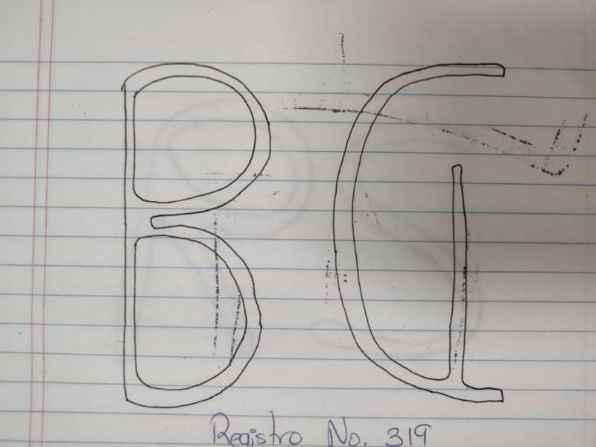 BG
Registro No. 319